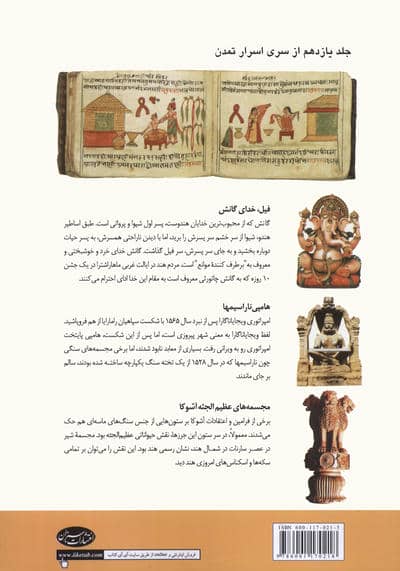 جلد یازدهم از سری اسرار تمدن
فیل، خدای گانش
گانش که از محبوب‌ترین خدایان هندوست، پسر اول شیوا و پرواتی است. طبق اساطیر
هندو، شیوا از سر خشم سر پسرش را برید، اما با دیدن ناراحتی همسرش، به پسر حیات
دوباره بخشید و به جای سر پسرش، سر فیل گذاشت. گانش خدای خرد و خوشبختی و
معروف به "برطرف کنندهٔ موانع" است. مردم هند در ایالت غربی ماهاراشترا در یک جشن
۱۰ روزه که به گانش چاتورتی معروف است به مقام این خدا ادای احترام می‌کنند.
هامپی ناراسیمها
امپراتوری ویجایاناگارا پس از نبرد سال ۱۵۶۵ با شکست سپاهیان رامارایا از هم فروپاشید.
لفظ ویجایاناگارا به معنی شهر پیروزی است، اما پس از این شکست، هامپی پایتخت
امپراتوری رو به ویرانی رفت. بسیاری از معابد نابود شدند، اما برخی مجسمه‌های سنگی
چون ناراسیمها که در سال ۱۵۲۸ از یک تخته سنگ یکپارچه ساخته شده بودند، سالم
بر جای ماندند.
مجسمه‌های عظیم‌الجثه آشوکا
برخی از فرامین و اعتقادات آشوکا بر ستون‌هایی از جنس سنگ‌های ماسه‌ای هم حک
می‌شدند. معمولاً، در سر ستون این جرزها، نقش حیواناتی عظیم‌الجثه بود. مجسمهٔ شیر
در عصر سارنات در شمال هند، نشان رسمی هند بود. این نقش را می‌توان بر تمامی
سکه‌ها و اسکناس‌های امروزی هند دید.
ISBN 600-117-021-5
9786001170218
www.iiketab.com
فروش اینترنتی و online از طریق سایت آی آی کتاب